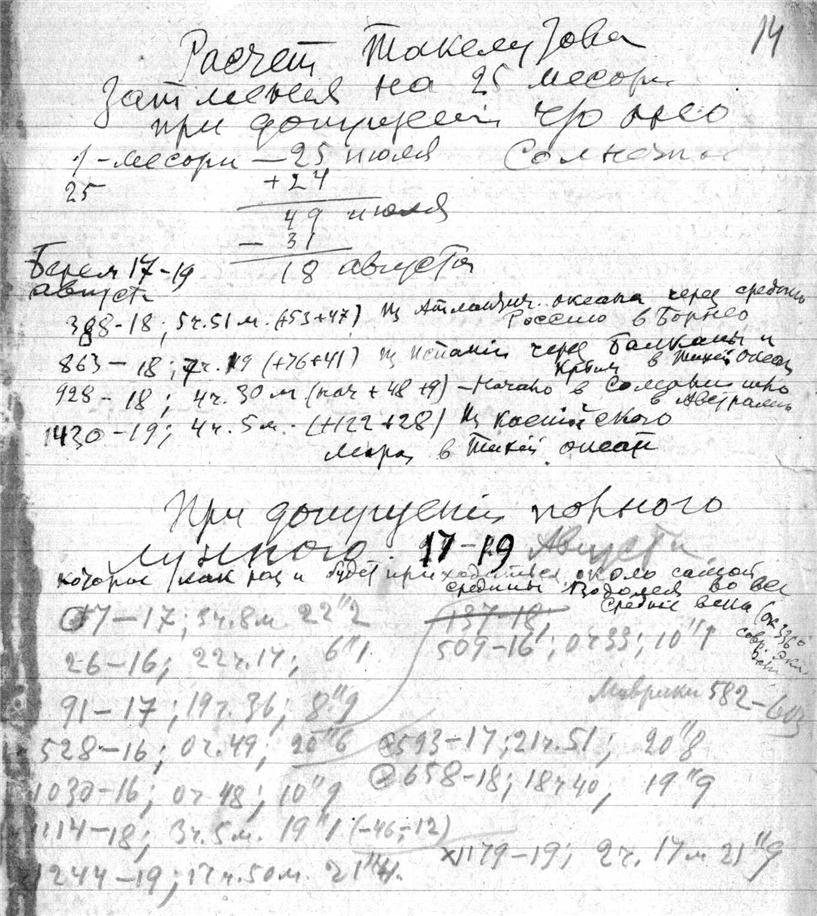 14
Расчет
Затмения на 25 месори
при допущении что оно
Солнечное
1 - месори — 25 июля
25 +24
49 июля
— 31
18 августа
Берем 17-19
августа
18; 5ч. 51 м. (+53+47) Из Атлантич. океана через среднюю
Россию в Борнео
863 — 18; 7ч. 19 (+76+41) Из Испании через Балканы и
Крым в Тихий океан
928 — 18; 4ч. 30 м (нач +48+9) — Начало в
в Австралию
1430 — 19; 4ч. 5 м. (+122+28) Из Каспийского
Моря в Тихий океан
При допущении полного
лунного 17-19 Августа
которое как раз и будет приходиться около самой
средины Водолея во все
Средние века
17 — 17; 3ч. 8 м. 22"2
137-18;
26 — 16; 22ч. 17; 6"1
509-16; 0ч 33; 10"1
91 — 17; 19ч. 36; 8"9
Маврикий 582-603
528 — 16; 0ч. 49, 20"6
593-17; 21ч. 51; 20"8
1030-16; 0ч 48; 10"9
658-18; 18ч 40, 19"9
1114-18; 3ч. 5 м. 19"1 (-46;-12)
1179-19; 2ч. 17 м 21"9
1244-19; 17ч. 50 м.